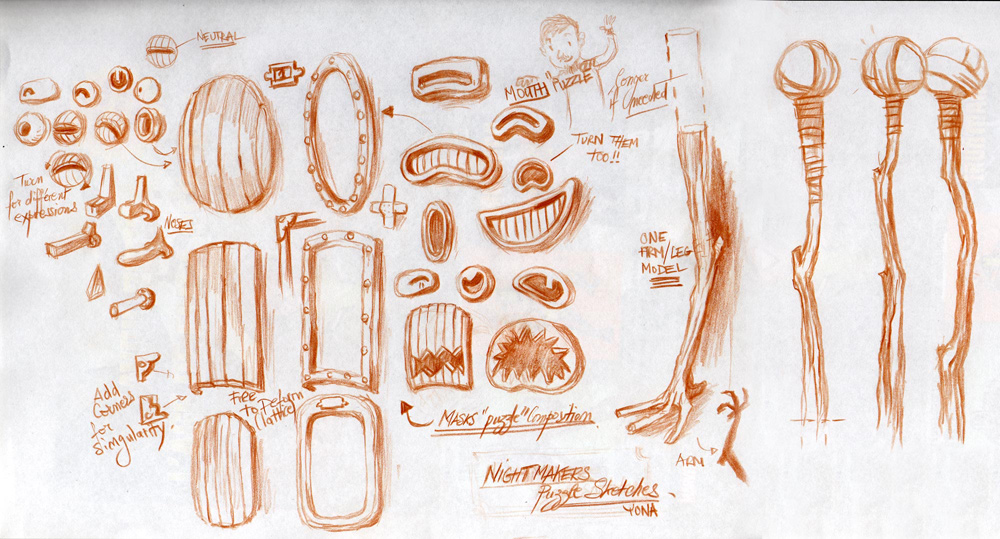 NEUTRAL
MOUTH "PUZZLE"
Longer
if Uneeded
TURN THEM
TOO!!
Turn
for different
expressions
NOSES
ONE
ARM/LEG
MODEL
Add
Corners
for
Singularity.
Free
to Deform
(lattice)
MASKS "puzzle" Composition
ARM
NIGHTMAKERS
Puzzle Sketches.
YONA